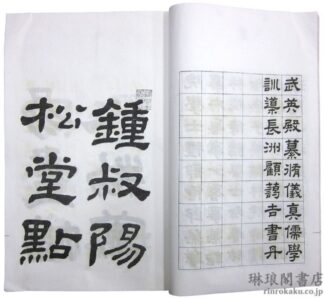 武英殿纂脩儀真儒學
訓導長洲顧藹吉書丹
鍾叔陽
松堂點
琳琅閣書店
rinrokaku.co.jp